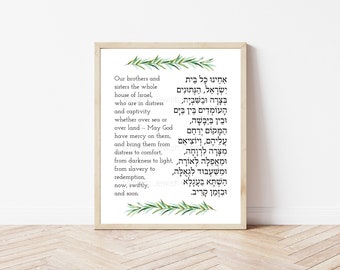 Our brothers and
sisters the whole
house of Israel,
who are in distress
and captivity
whether over sea or
over land — May God
have mercy on them,
and bring them from
distress to comfort,
from darkness to light,
from slavery to
redemption,
now, swiftly,
and soon.
אַחֵינוּ כָּל בֵּית
יִשְׂרָאֵל, הַנְּתוּנִים
בְּצָרָה וּבְשִׁבְיָה,
הָעוֹמְדִים בֵּין בַּיָּם
וּבֵין בַּיַּבָּשָׁה,
הַמָּקוֹם יְרַחֵם
עֲלֵיהֶם, וְיוֹצִיאֵם
מִצָּרָה לִרְוָחָה,
וּמֵאֲפֵלָה לְאוֹרָה,
וּמִשִּׁעְבּוּד לִגְאֻלָּה,
הַשְׁתָּא בַּעֲגָלָא
וּבִזְמַן קָרִיב.